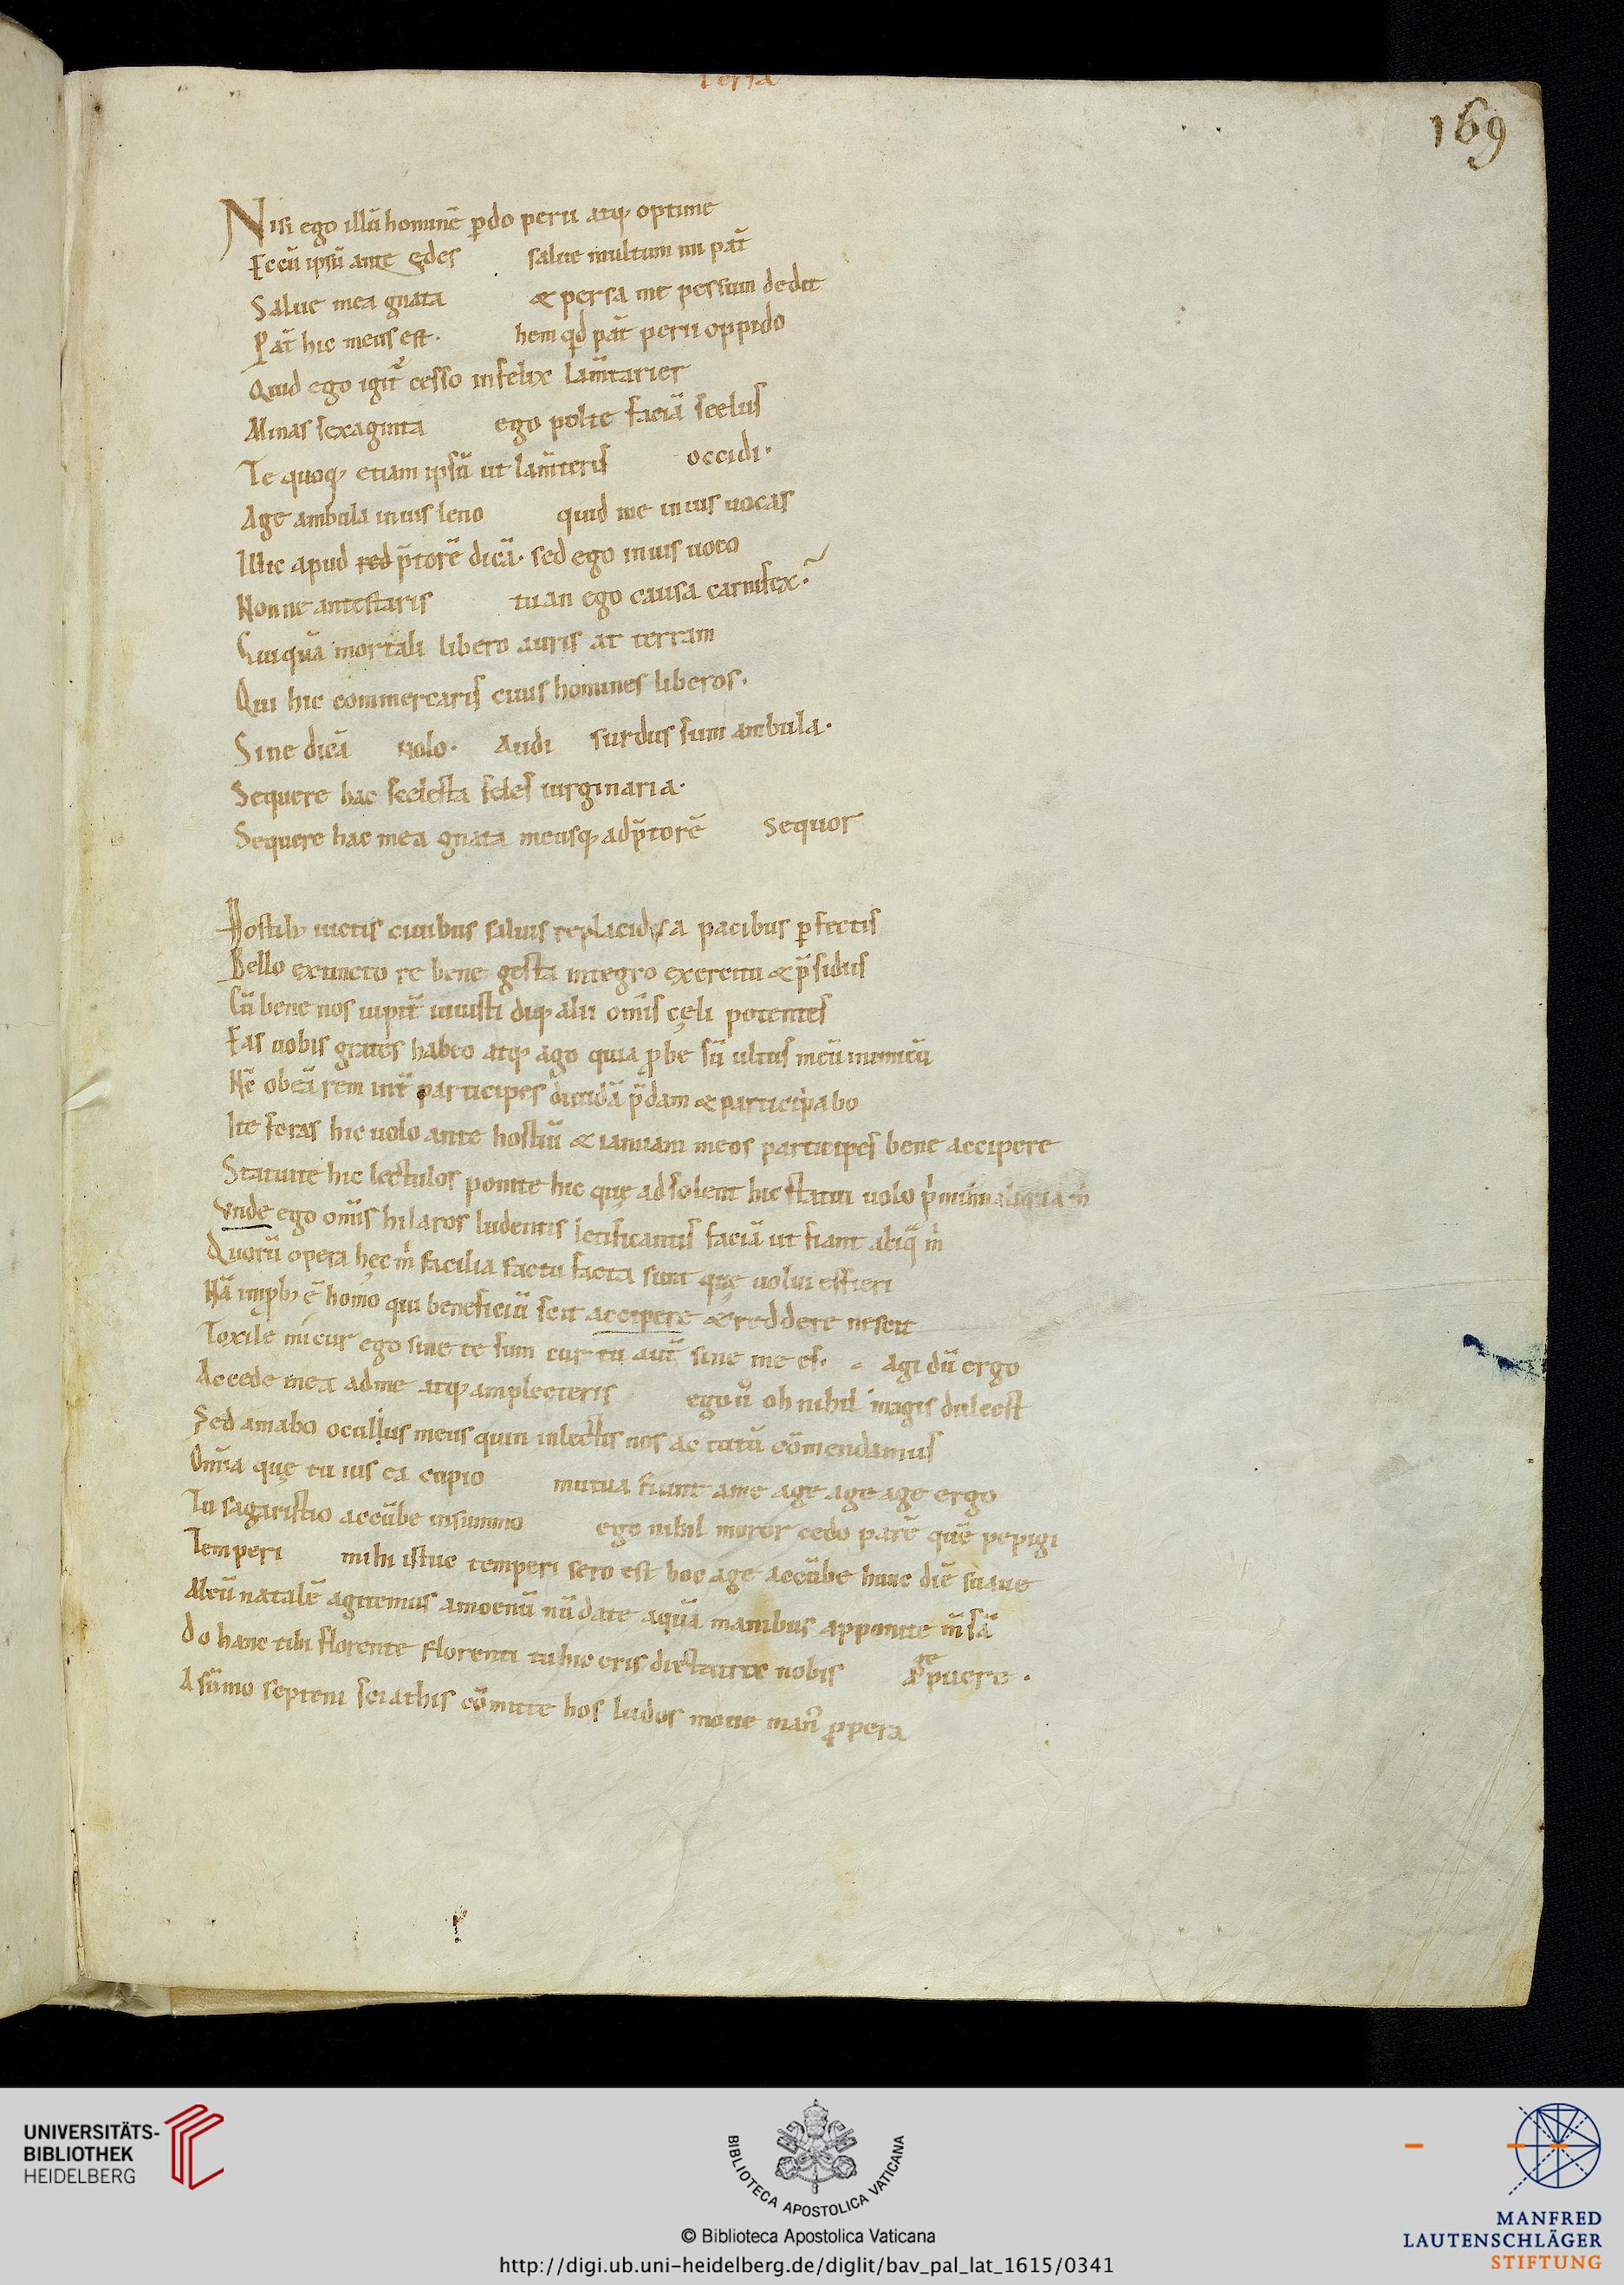 Persa
169
Nisi ego illū hominē ꝑdo perii atqꝫ optime
Eccū ipsū ante ędes salue multum mi pat̄
Salue mea gnata & persa me pessum dedit
Pat̄ hic meus est· hem qd pat̄ perii oppido
Quid ego igit᷑ cesso infelix lam̄tarier
Minas sexaginta ego polte faciā scelus
Te quoqꝫ etiam ipsū ut lam̄teris occidi·
Age ambula inius leno quid me inius uocas
Illic apud red p̄torē dicā· sed ego inuis uoco
Nonne antestaris tuan ego causa carnifex·
Cuiquā mortali libero auris at terram
Qui hic commercaris ciuis homines liberos·
Sine dicā nolo· Audi surdus sum ambula·
Sequere hac scelesta feles uirginaria·
Sequere hac mea gnata meusqꝫ adp̄torē sequor
Hostibꝫ uictis ciuibus saluis replacida pacibus ꝑfectis
Bello extincto re bene gesta integro exercitu & p̄sidiis
Cū bene nos iupit̄ iuuisti diiqꝫ alii om̄is cęli potentes
Eas uobis grates habeo atqꝫ ago quia ꝓbe sū ultus meū inimicū
Nc̄ obeā rem int̄ participes diuidā p̄dam & participabo
Ite foras hic uolo ante hostiū & ianuam meos participes bene accipere
Statuite hic lectulos ponite hic quę adsolent hic statui uolo
Vnde ego om̄is hilaros ludentis letificantis faciā ut fiant
Quorū opera hęc m̄ facilia factu facta sunt quę uolui effieri
Nā improbꝫ ē homo qui beneficiū scit accipere & reddere nescit
Toxile mi cur ego sine te sum cur tu aut̄ sine me es· agi dū ergo
Accede mea adme atqꝫ amplecteris ego ū oh nihil magis dulcest
Sed amabo ocullus meus quin inlectis nos ac tutū cōmendamus
Om̄ia quę tu uis ea cupio mutua fiunt ame age age age ergo
Tu sagaristio accūbe insummo ego nihil moror cedo parē quē pepigi
Temperi mihi istuc temperi sero est hoc age accūbe hunc diē suaue
Meū natalē agitemus amoenū nū date aquā manibus apponite m̄sā
Do hanc tibi florente florenti tu hic eris dictatrix nobis puere·
A sūmo septeni sciathis cōmitte hos ludos moue man᷑ ꝓpera
UNIVERSITÄTS-
BIBLIOTHEK
HEIDELBERG
BIBLIOTECA APOSTOLICA VATICANA
© Biblioteca Apostolica Vaticana
http://digi.ub.uni-heidelberg.de/diglit/bav_pal_lat_1615/0341
MANFRED
LAUTENSCHLÄGER
STIFTUNG